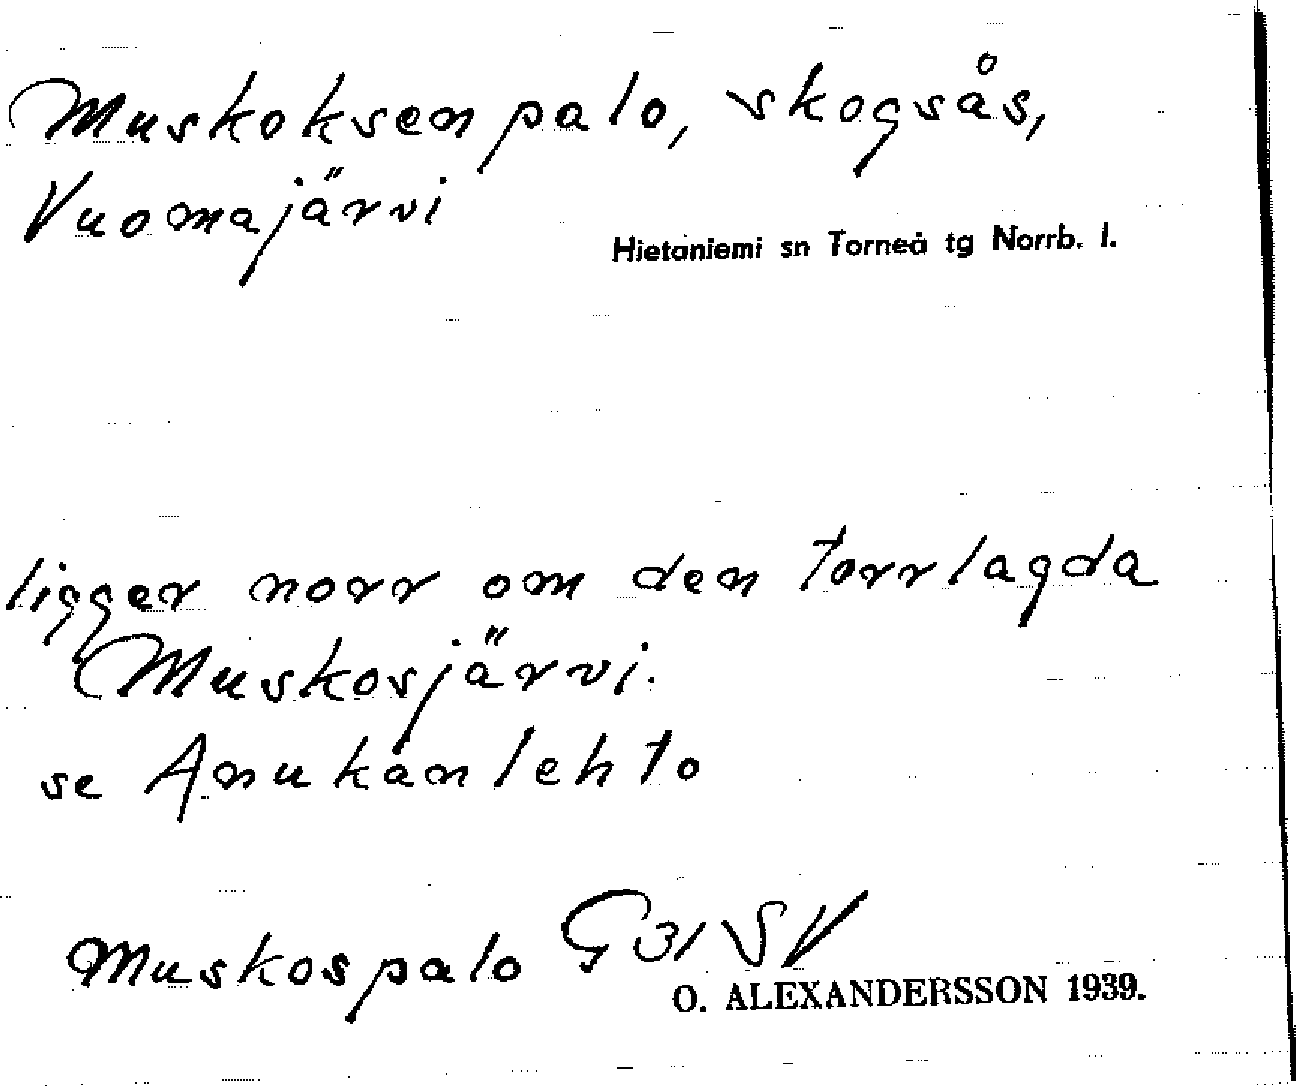 Muskoksenpalo, skogsås,
Vuomajärvi
Hietaniemi sn Torneå tg Norrb. l.
ligger norr om den torrlagda
Muskosjärvi.
se Anukanlehto
Muskospalo G31SV
O. ALEXANDERSSON 1939.